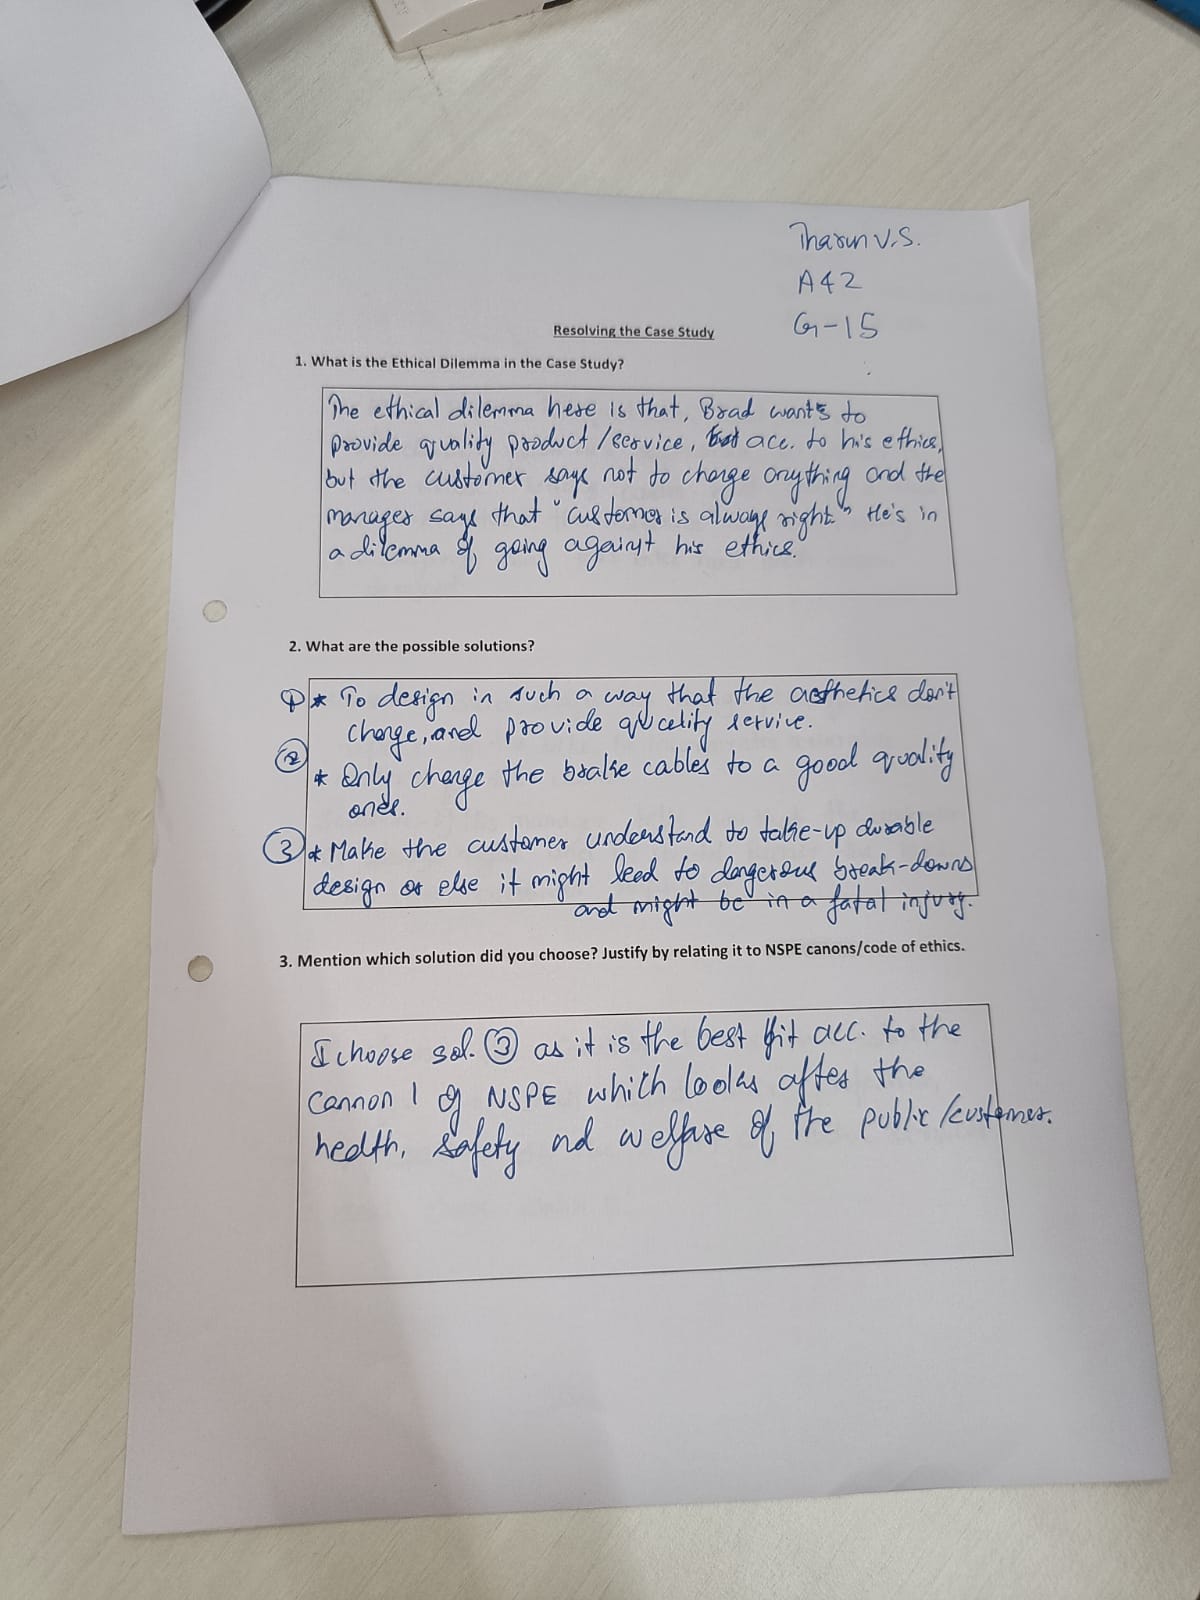 Tharun V.S.
A42
G-15
Resolving the Case Study
1. What is the Ethical Dilemma in the Case Study?
The ethical dilemma here is that, Brad wants to
provide quality product/service, acc. to his ethics,
but the customer says not to change anything and the
manager says that "customer is always right" He's in
a dilemma of going against his ethics.
2. What are the possible solutions?
① * To design in such a way that the aesthetics don't
change, and provide quality service.
②
* Only change the brake cables to a good quality
ones.
③ * Make the customer understand to take-up durable
design or else it might lead to dangerous break-downs
and might be in a fatal injury.
3. Mention which solution did you choose? Justify by relating it to NSPE canons/code of ethics.
I choose sol. ③ as it is the best fit acc. to the
Cannon 1 of NSPE which looks after the
health, safety nd welfare of the public/customer.